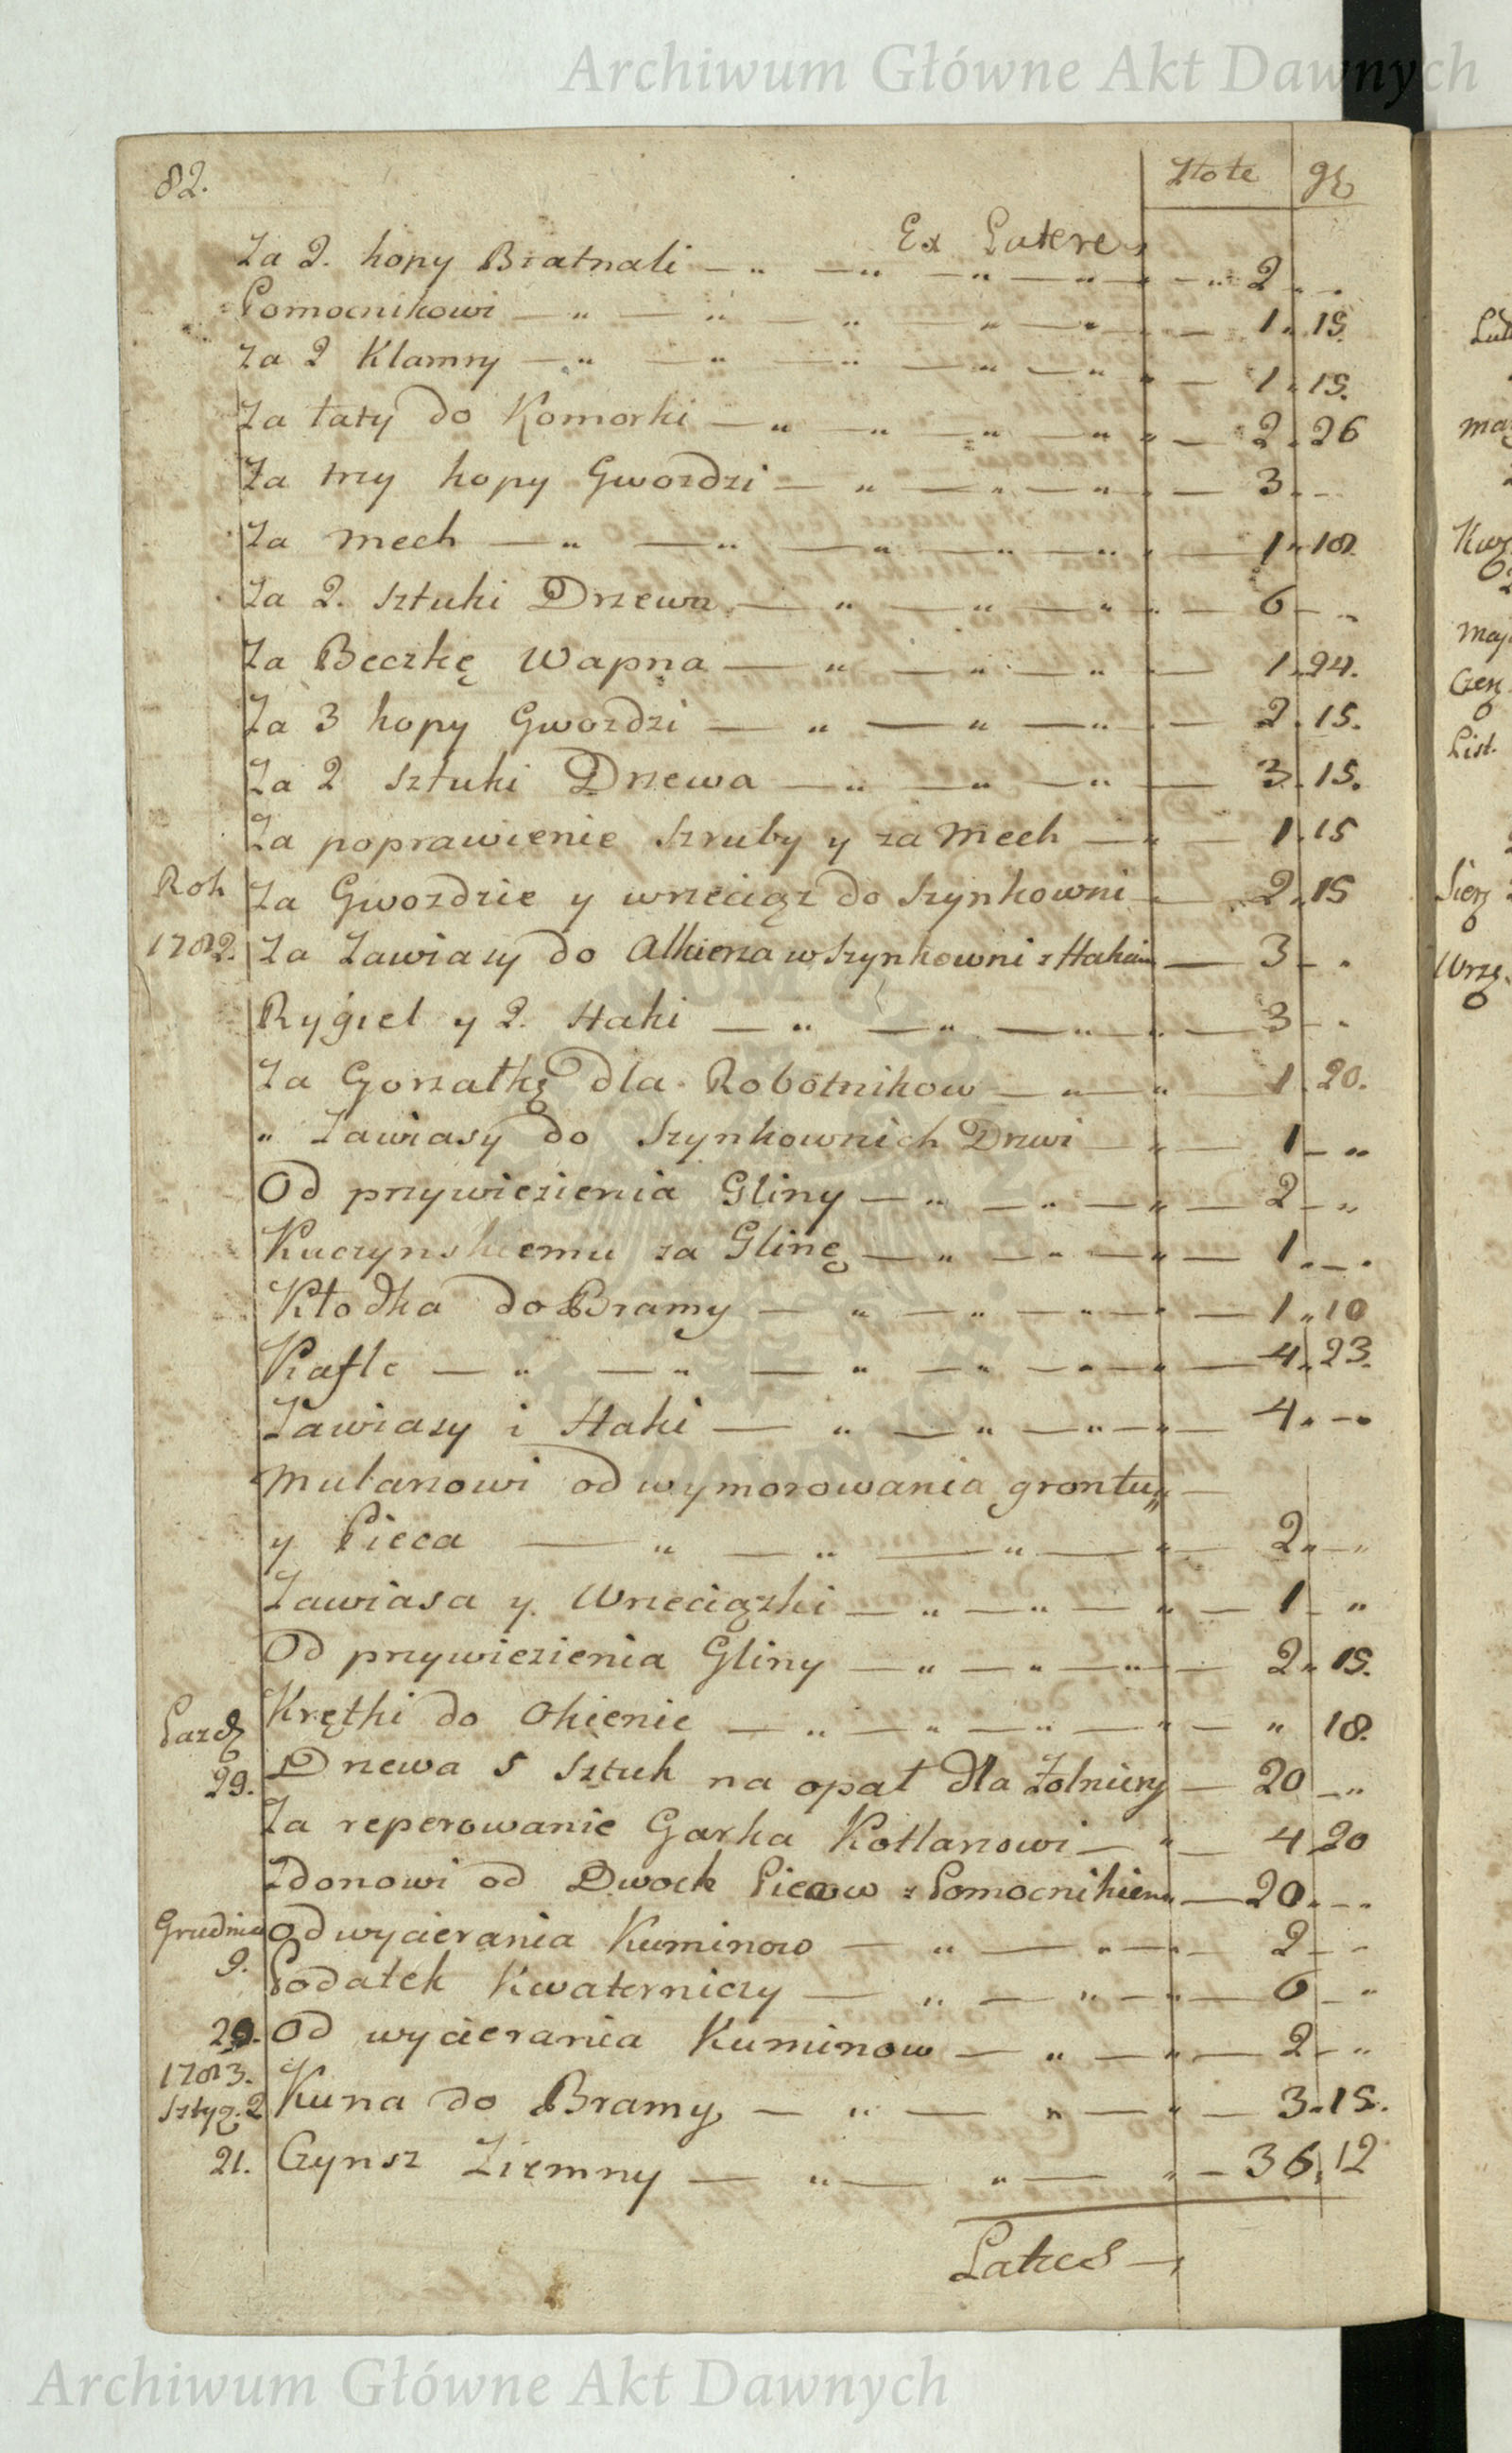 Archiwum Główne Akt Dawnych
82. Złote gr
Ex Latere
Za 2. kopy Bratnali 2
Pomocnikowi 1. 15.
Za 2 Klamry 1. 15.
Za łaty do Komorki 2. 26
Za trzy kopy Gwozdzi 3
Za mech 1. 18.
Za 2. sztuki Drzewa 6
Za Beczkę Wapna 1. 24.
Za 3 kopy Gwozdzi 2. 15.
Za 2 sztuki Drzewa 3. 15.
Za poprawienie szruby y za mech 1. 15
Rok Za Gwozdzie y wrzeciąz do szynkowni 2. 15
1782. Za Zawiasy do Alkierza w szynkowni z Hakam 3
Rygiel y 2. Haki 3
Za Gorzałkę dla Robotnikow 1. 20.
" Zawiasy do szynkownich Drzwi 1
Od przywiezienia Gliny 2
Kuczynskiemu za Glinę 1
Kłodka do Bramy 1. 10
Kafle 4. 23.
Zawiasy i Haki 4
Mularzowi od wymorowania grontu
y Pieca 2
Zawiasa y Wrzeciązki 1
Od przywiezienia Gliny 2. 15.
Krętki do Okienic " 18.
Pazdz
29. Drzewa 5 sztuk na opał dla Zolnierzy 20
Za reperowanie Garka Kotlarzowi 4 20
Zdonowi od Dwoch Piecow z Pomocnikiem 20
Grudnia Od wycierania Kuminow 2
9. Podatek Kwaterniczy 6
29. Od wycierania Kuminow 2
1783.
Stycz. 2 Kuna do Bramy 3. 15.
21. Czynsz Ziemny 36. 12
Latus
Maj
List.
Wrze.
Archiwum Główne Akt Dawnych